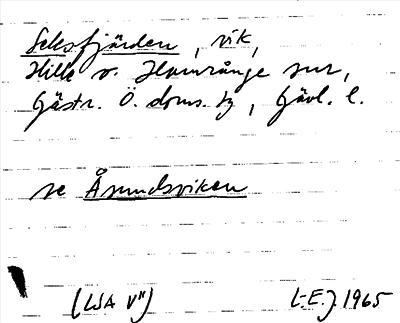 Seksfjärden, vik,
Hille o. Hamrånge snr,
Gästr. Ö. doms. tg, Gävl. l.
se Åsundsviken
(LSA V") L-E.J. 1965